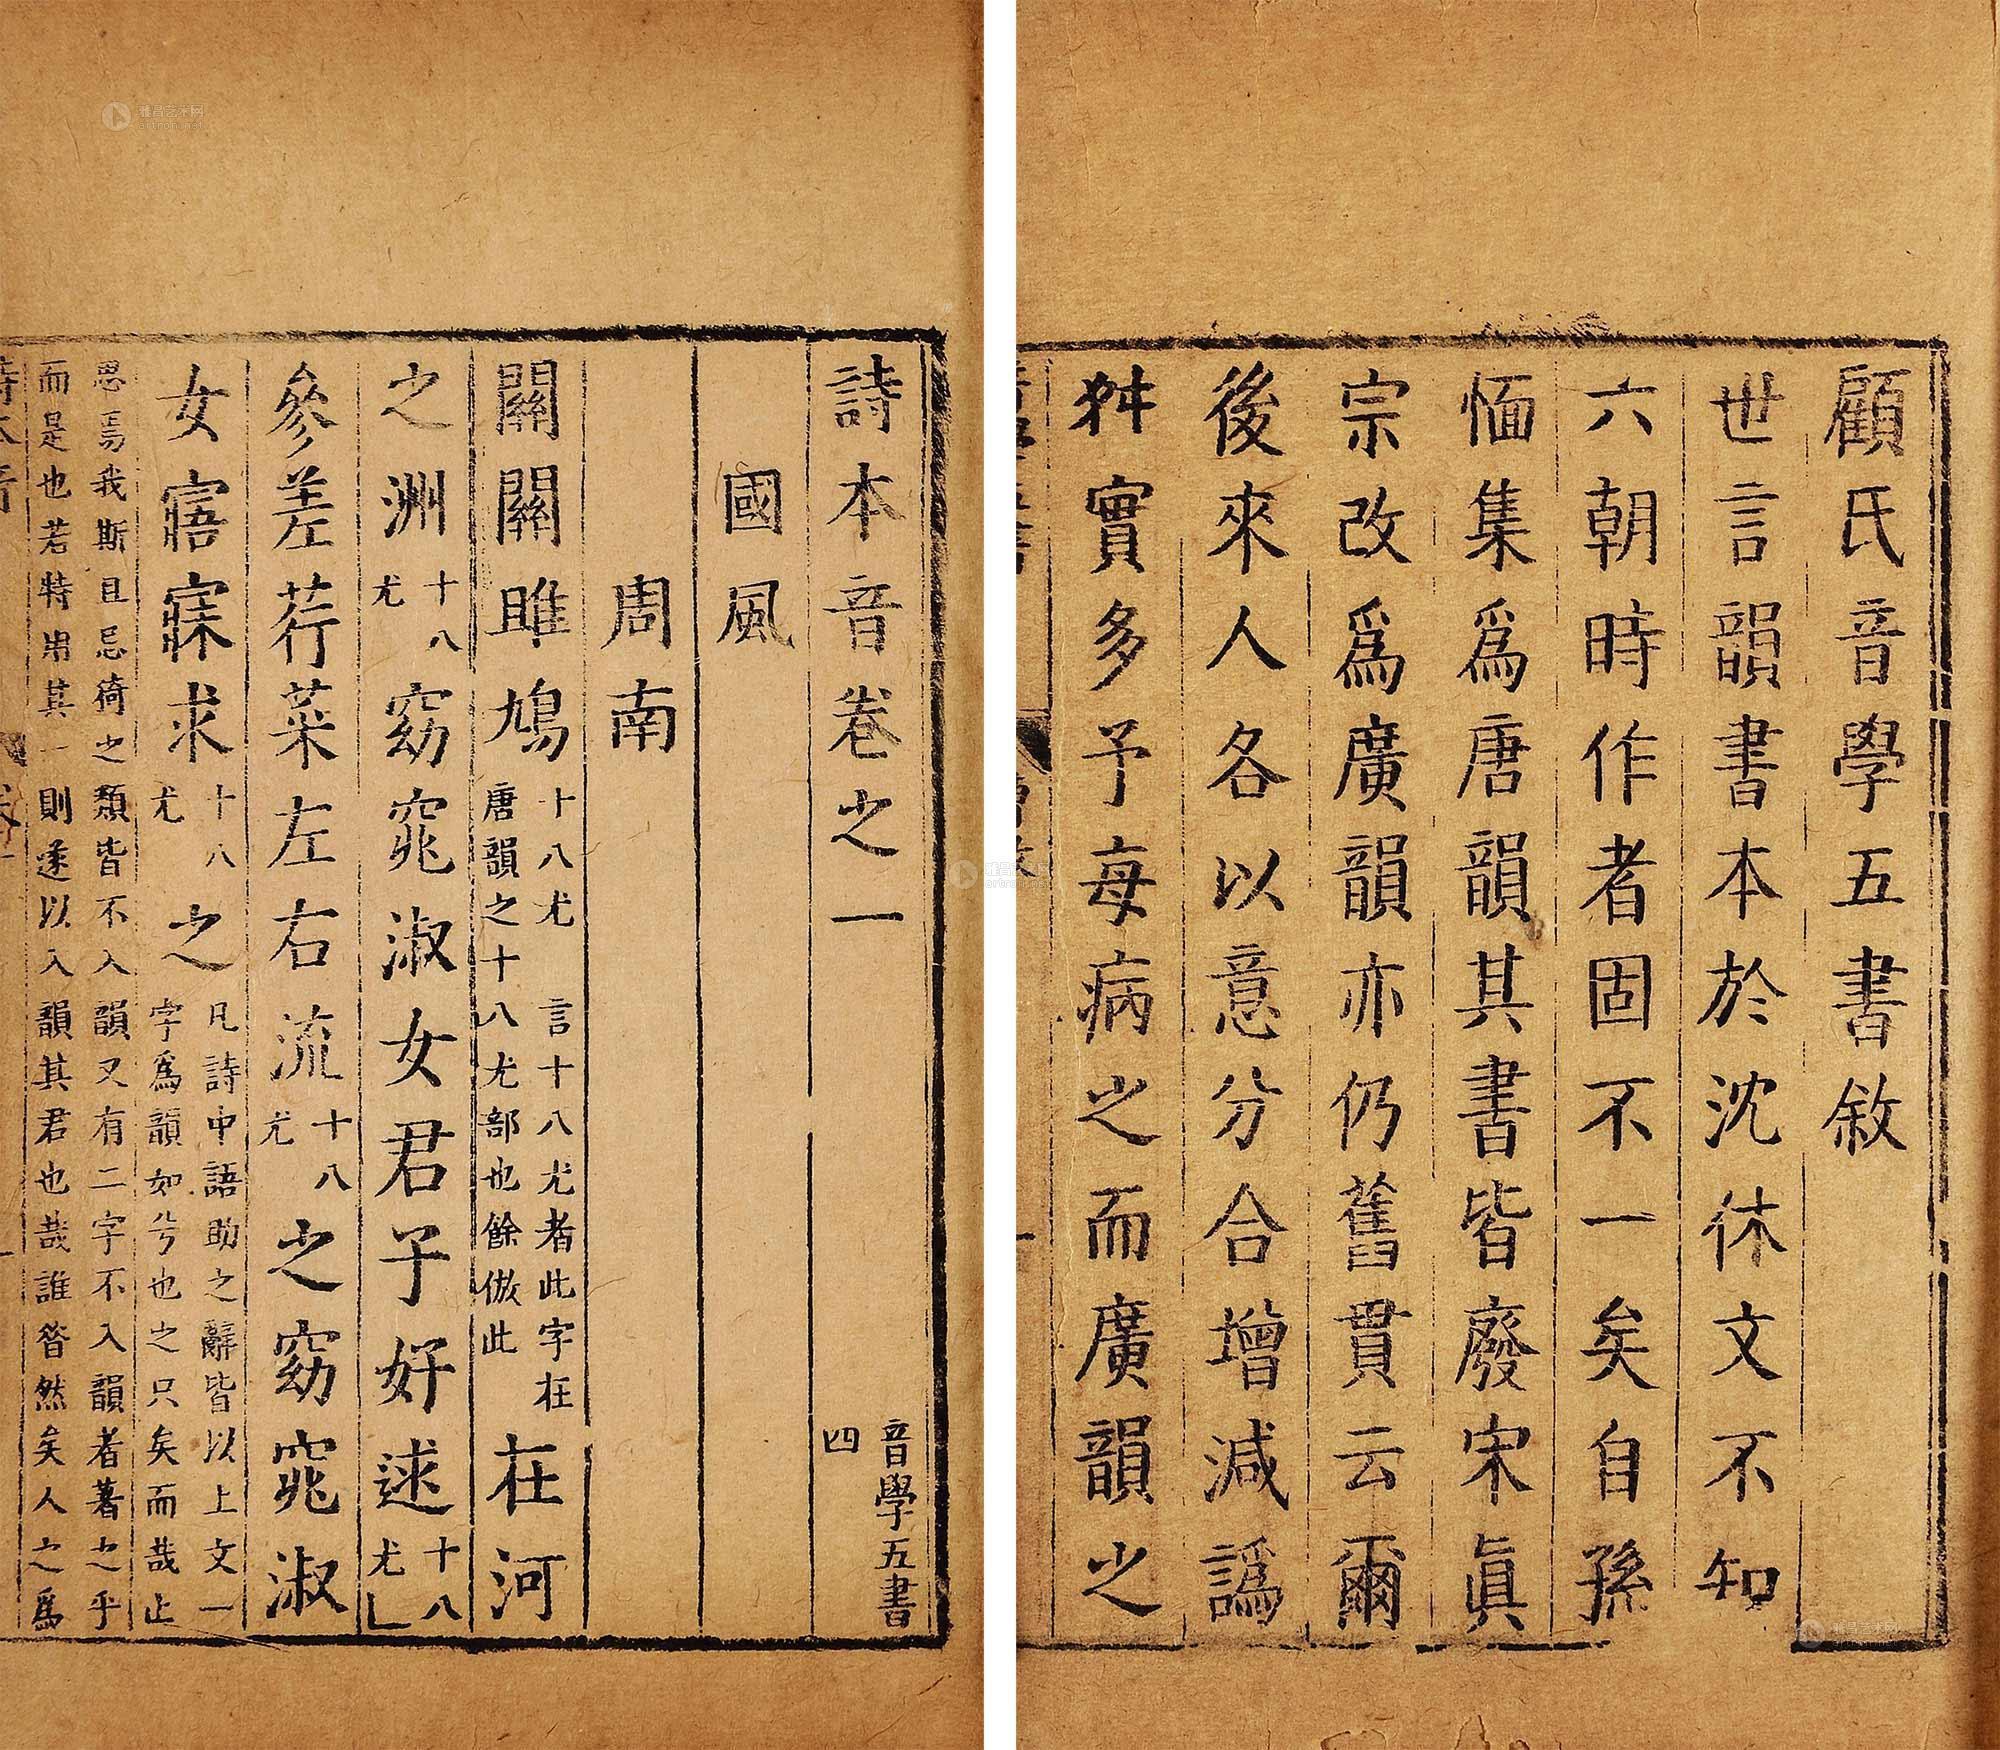 顧氏音學五書敘
世言韻書本於沈休文不知
六朝時作者固不一矣自孫
愐集爲唐韻其書皆廢宋眞
宗改爲廣韻亦仍舊貫云爾
後來人各以意分合增減譌
舛實多予每病之而廣韻之
詩本音卷之一
音學五書
四
國風
周南
關關雎鳩
十八尤 言十八尤者此字在
唐韻之十八尤部也餘倣此
在河
之洲
十八
尤
窈窕淑女君子好逑
十八
尤
參差荇菜左右流
十八
尤
之窈窕淑
女寤寐求
十八
尤
之
凡詩中語助之辭皆以上文一
字爲韻如兮也之只矣而哉止
思焉我斯且忌猗之類皆不入韻又有二字不入韻者著之乎
而是也若特出其一則遂以入韻其君也哉誰昔然矣人之爲
雅昌艺术网
artron.net
雅昌艺术网
artron.net